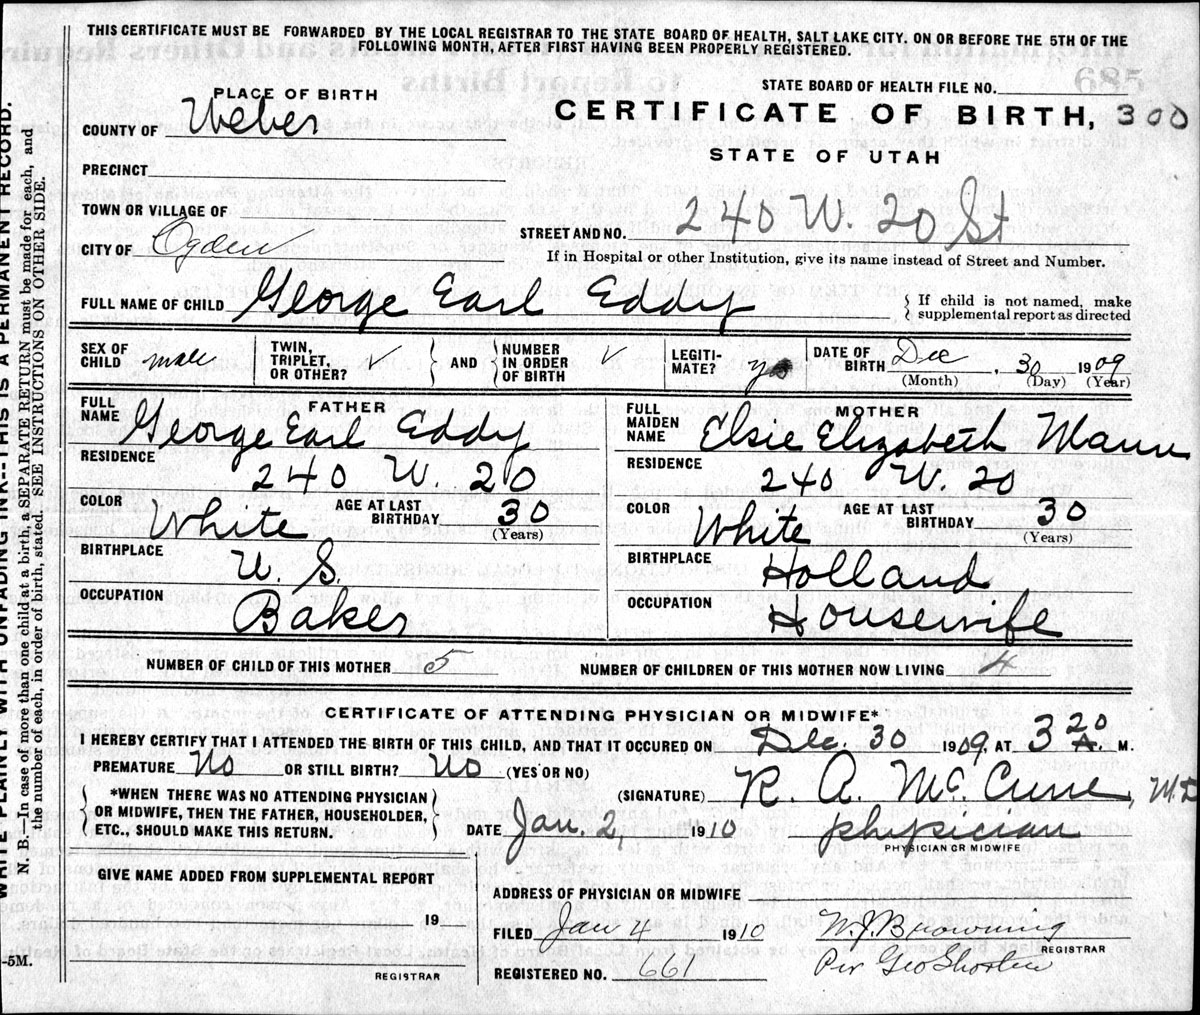 THIS CERTIFICATE MUST BE FORWARDED BY THE LOCAL REGISTRAR TO THE STATE BOARD OF HEALTH, SALT LAKE CITY, ON OR BEFORE THE 5TH OF THE
FOLLOWING MONTH, AFTER FIRST HAVING BEEN PROPERLY REGISTERED.
STATE BOARD OF HEALTH FILE NO.
685
PLACE OF BIRTH
CERTIFICATE OF BIRTH, 300
COUNTY OF Weber
STATE OF UTAH
PRECINCT
TOWN OR VILLAGE OF
STREET AND NO. 240 W. 20 St
CITY OF Ogden
If in Hospital or other Institution, give its name instead of Street and Number.
FULL NAME OF CHILD George Earl Eddy
If child is not named, make
supplemental report as directed
SEX OF CHILD male
TWIN, TRIPLET, OR OTHER? ✓
AND
NUMBER IN ORDER OF BIRTH ✓
LEGITI-MATE? yes
DATE OF BIRTH Dec, 30 1909
(Month) (Day) (Year)
FATHER
FULL NAME George Earl Eddy
RESIDENCE 240 W. 20
COLOR White AGE AT LAST BIRTHDAY 30
(Years)
BIRTHPLACE U. S.
OCCUPATION Baker
MOTHER
FULL MAIDEN NAME Elsie Elizabeth Mann
RESIDENCE 240 W. 20
COLOR White AGE AT LAST BIRTHDAY 30
(Years)
BIRTHPLACE Holland
OCCUPATION Housewife
NUMBER OF CHILD OF THIS MOTHER 5 NUMBER OF CHILDREN OF THIS MOTHER NOW LIVING 4
CERTIFICATE OF ATTENDING PHYSICIAN OR MIDWIFE*
I HEREBY CERTIFY THAT I ATTENDED THE BIRTH OF THIS CHILD, AND THAT IT OCCURED ON Dec. 30 1909, AT 3 20 A. M.
PREMATURE No OR STILL BIRTH? No (YES OR NO)
(SIGNATURE) R. A. McCune, M.D
*WHEN THERE WAS NO ATTENDING PHYSICIAN
OR MIDWIFE, THEN THE FATHER, HOUSEHOLDER,
ETC., SHOULD MAKE THIS RETURN.
DATE Jan. 2, 1910 physician
PHYSICIAN OR MIDWIFE
GIVE NAME ADDED FROM SUPPLEMENTAL REPORT
19
REGISTRAR
ADDRESS OF PHYSICIAN OR MIDWIFE
FILED Jan 4 1910 W. J. Browning
REGISTRAR
REGISTERED NO. 661 Per Geo Shorten
WRITE PLAINLY WITH UNFADING INK--THIS IS A PERMANENT RECORD.
N. B.--In case of more than one child at a birth, a SEPARATE RETURN must be made for each, and
the number of each, in order of birth, stated. SEE INSTRUCTIONS ON OTHER SIDE.
-5M.